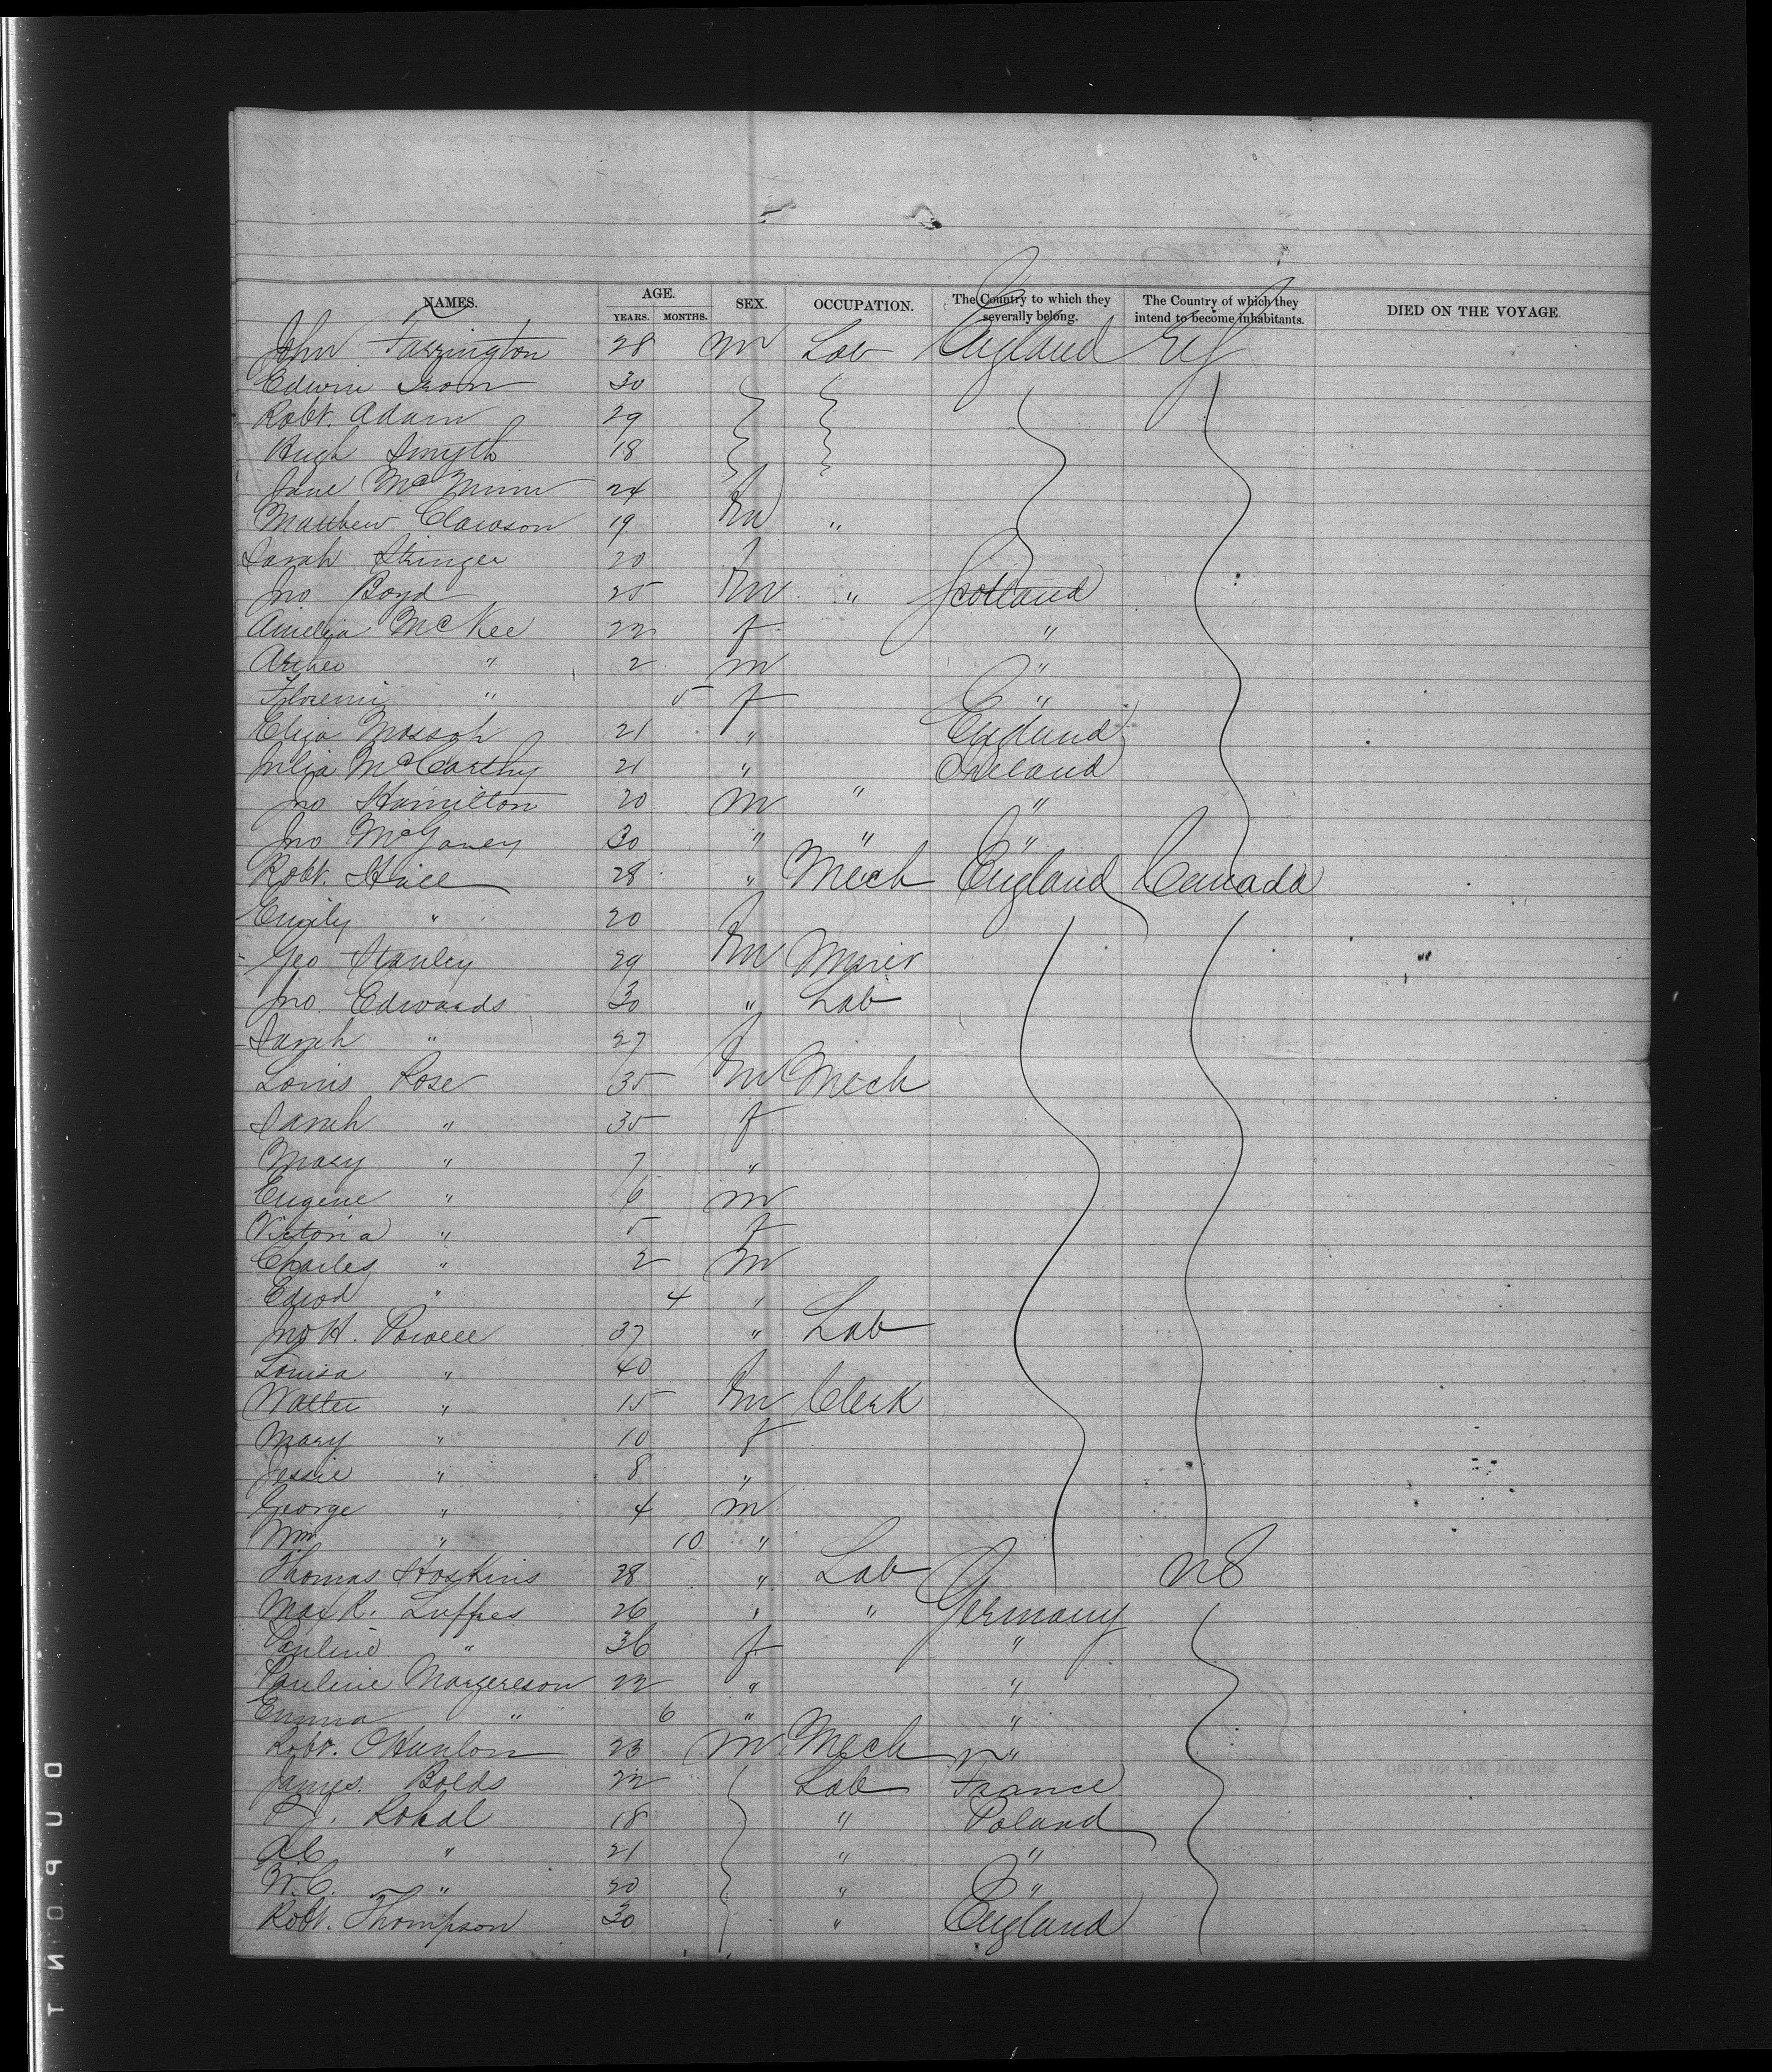 NAMES. AGE. SEX. OCCUPATION. The Country to which they severally belong. The Country of which they intend to become inhabitants. DIED ON THE VOYAGE.
YEARS. MONTHS.
John Farrington 28 m Lab England
Edwin 30 "
Robt. Adam 29
Hugh Smyth 18
Jane 24
Matthew Clawson 19 m "
Sarah Stringer 20 f
Jno Boyd 25 m " Scotland
Amelia McKee 22 f "
" 2 m "
" 5 f "
Eliza 21 " England
Julia McCarthy 21 " Ireland
Jno Hamilton 20 m " "
Jno 30 " " "
Robt. 28 " Mech England Canada
Emily " 20
Geo Stanley 29 m
Jno. Edwards 30 " Lab
Sarah " 27
Louis Rose 35 m Mech
Sarah " 35 f
Mary " 7 "
Eugene " 6 m
Victoria " 5 f
Charles " 2 m
Edwd " 4 "
Jno H. Powell 37 " Lab
Louisa " 40
Walter " 15 m Clerk
Mary " 10 f
Jessie " 8 "
George " 4 m
Wm " 10 "
Thomas Hoskins 28 " Lab
Max R. 26 " " Germany
Pauline " 36 f "
Pauline Margereson 22 " "
Emma " 6 " "
Robt. OHanlon 23 m Mech "
James. Bolds 22 Lab France
18 " Poland
" 21 " "
W.C. " 20 " "
Robt. Thompson 30 " England